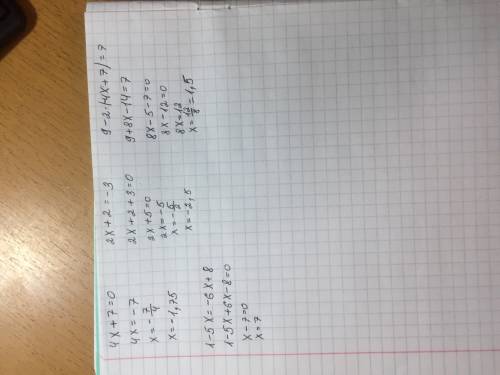 4x+7=0
4x=-7
x=-7/4
x=-1,75
2x+2=-3
2x+2+3=0
2x+5=0
2x=-5
x=-5/2
x=-2,5
9-2·(4x+7)=7
9+8x-14=7
8x-5-7=0
8x-12=0
8x=12
x=12/8=1,5
1-5x=-6x+8
1-5x+6x-8=0
x-7=0
x=7